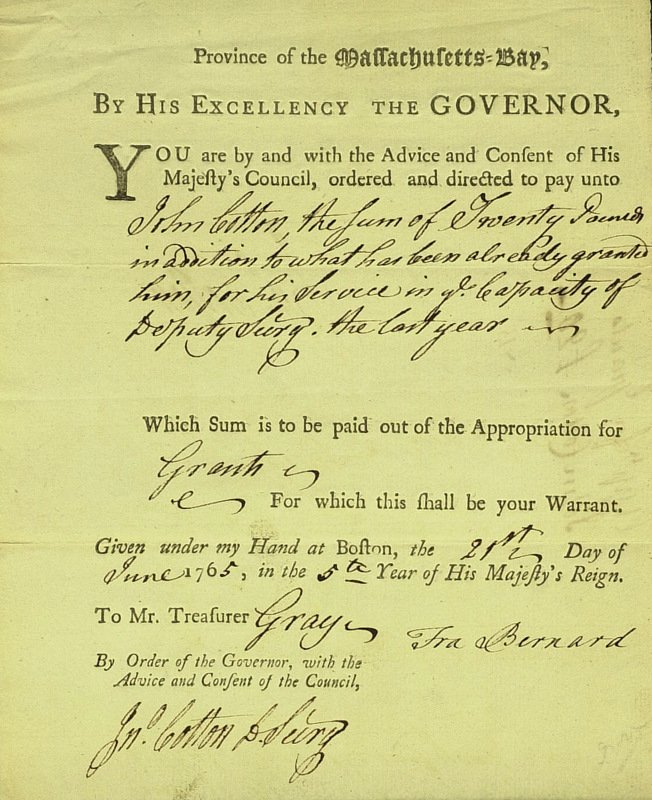 Province of the Maſſachuſetts-Bay,
BY HIS EXCELLENCY THE GOVERNOR,
YOU are by and with the Advice and Conſent of His
Majeſty's Council, ordered and directed to pay unto
John Cotton, the Sum of Twenty Pounds
in addition to what has been already granted
him, for his Service in ye. Capacity of
Deputy Secry. the last year
Which Sum is to be paid out of the Appropriation for
Grants
For which this ſhall be your Warrant.
Given under my Hand at Boſton, the 21st Day of
June 1765, in the 5th Year of His Majeſty's Reign.
To Mr. Treaſurer Gray
Fra Bernard
By Order of the Governor, with the
Advice and Conſent of the Council,
Jno. Cotton D. Secry